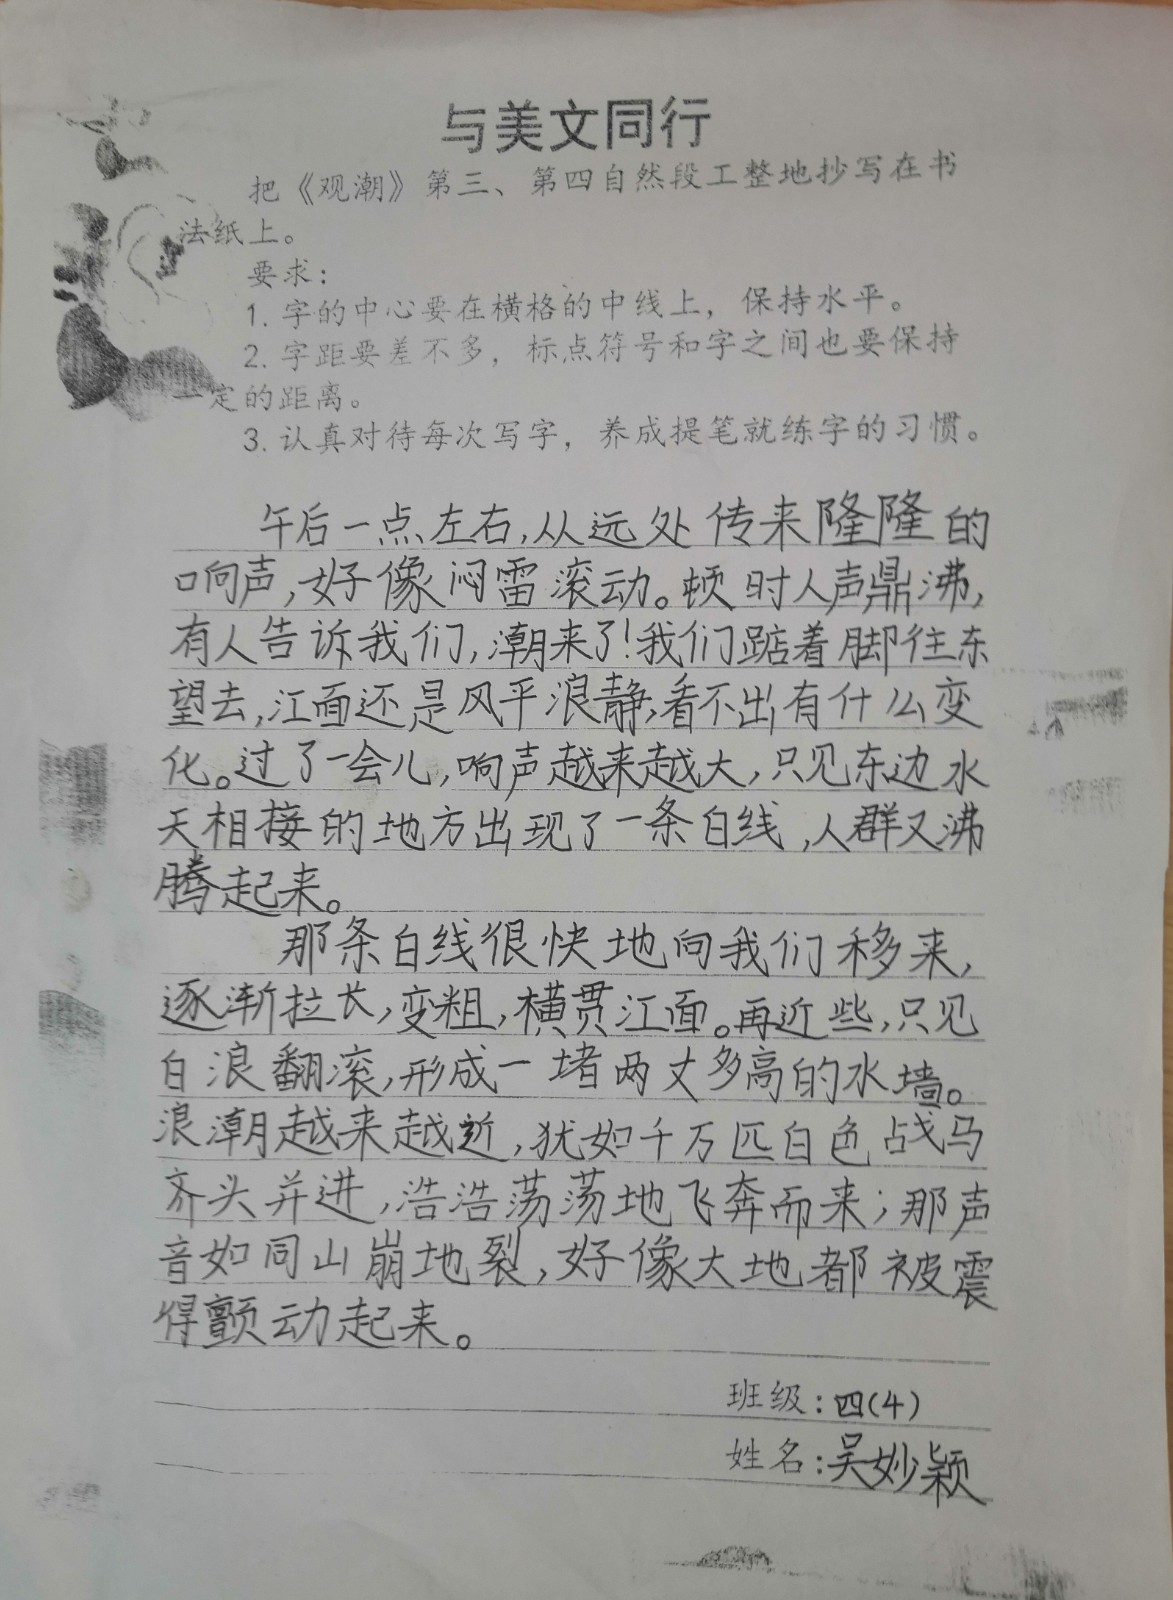 与美文同行
把《观潮》第三、第四自然段工整地抄写在书
法纸上。
要求：
1. 字的中心要在横格的中线上，保持水平。
2. 字距要差不多，标点符号和字之间也要保持
一定的距离。
3. 认真对待每次写字，养成提笔就练字的习惯。
午后一点左右,从远处传来隆隆的
响声,好像闷雷滚动。顿时人声鼎沸,
有人告诉我们,潮来了!我们踮着脚往东
望去,江面还是风平浪静,看不出有什么变
化。过了一会儿,响声越来越大,只见东边水
天相接的地方出现了一条白线,人群又沸
腾起来。
那条白线很快地向我们移来,
逐渐拉长,变粗,横贯江面。再近些,只见
白浪翻滚,形成一堵两丈多高的水墙。
浪潮越来越近,犹如千万匹白色战马
齐头并进,浩浩荡荡地飞奔而来;那声
音如同山崩地裂,好像大地都被震
得颤动起来。
班级:四(4)
姓名:吴妙颖